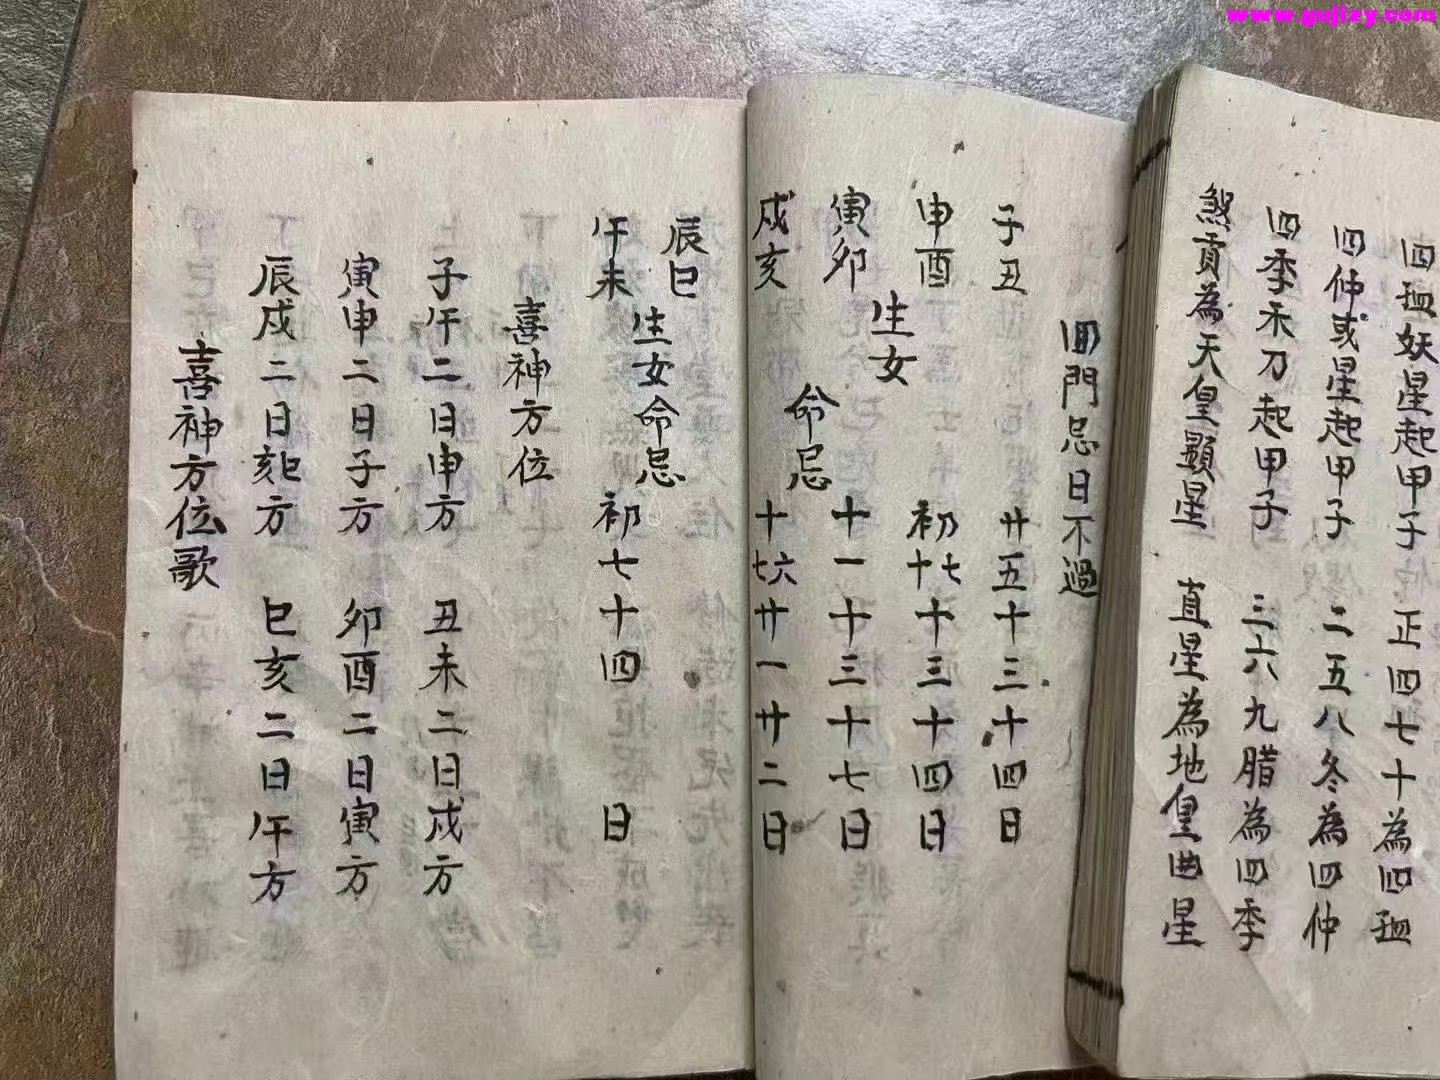 www.gujizy.com
四孟妖星起甲子 正四七十為四孟
四仲或星起甲子 二五八冬為四仲
四季禾刀起甲子 三六九腊為四季
煞貢為天皇顯星 直星為地皇曲星
回門忌日不過
子丑 廿五十三十四日
申酉 初十七十三十四日
生女
寅卯 十一十三十七日
命忌
戌亥 十七六廿一廿二日
辰巳
生女命忌
午未 初七十四 日
喜神方位
子午二日申方 丑未二日戌方
寅申二日子方 卯酉二日寅方
辰戌二日方 巳亥二日午方
喜神方位歌